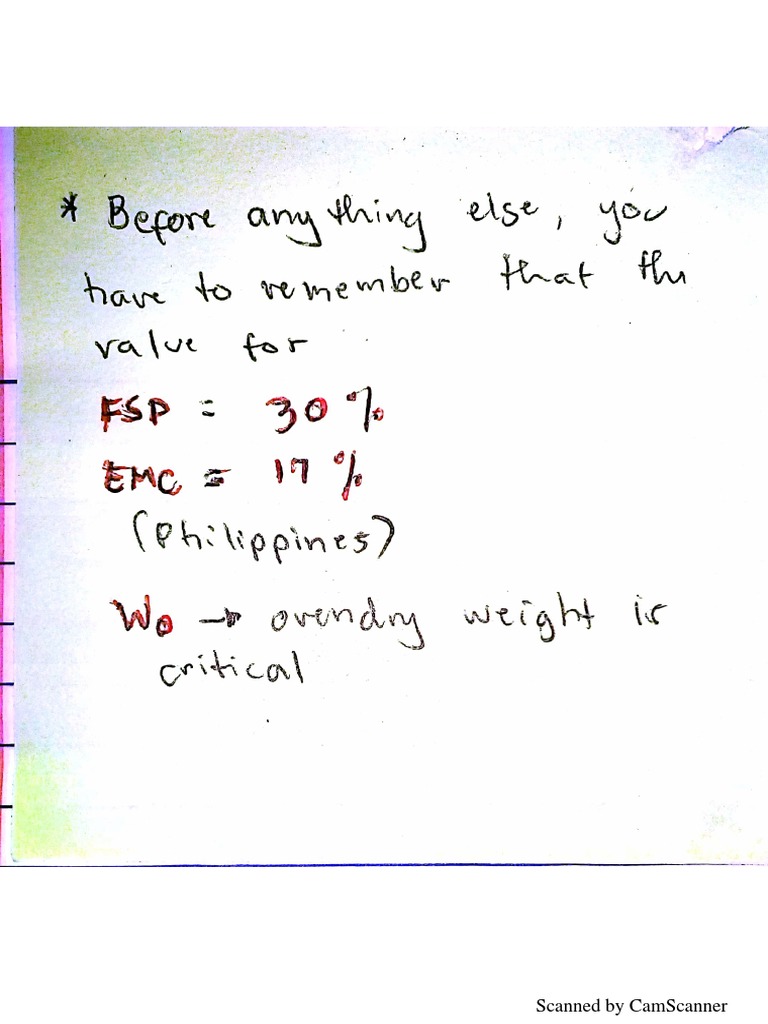 * Before anything else, you
have to remember that the
value for
FSP = 30%
EMC = 17%
(Philippines)
Wo → ovendry weight is
critical
Scanned by CamScanner